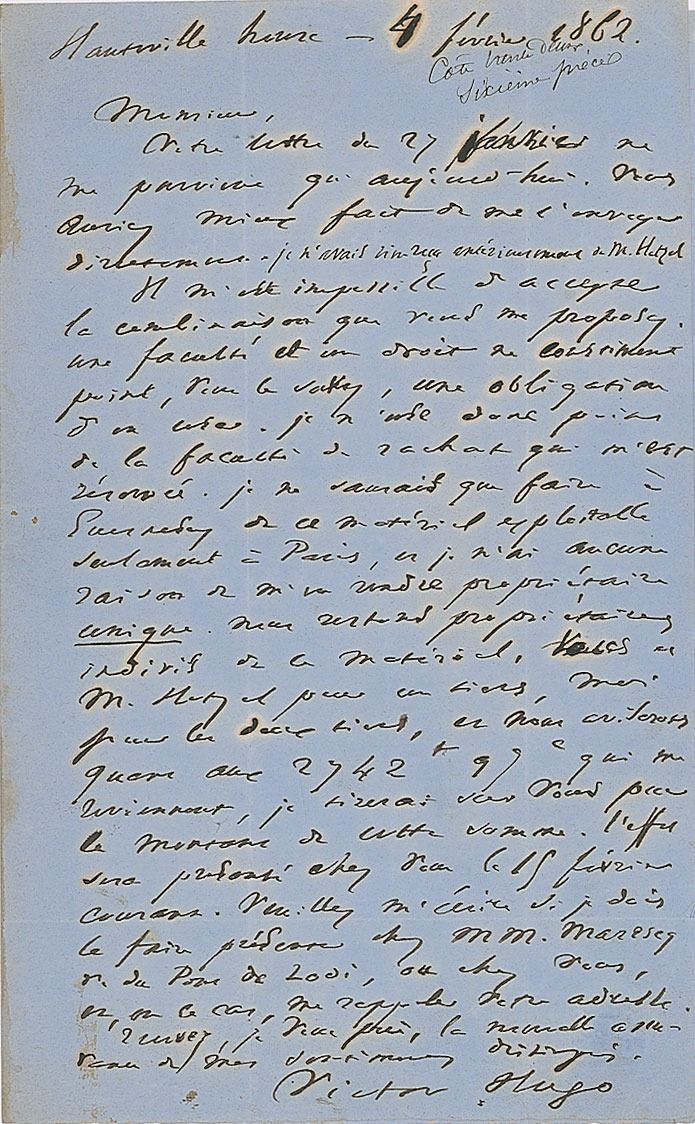 Hauteville house – 4 février 1862.
Cote trente deux
Sixième pièce
Monsieur,
Votre lettre du 27 janvier ne
me parvient qu'aujourd'hui. Vous
auriez mieux fait de me l'envoyer
directement. je n'avais rien reçu antérieurement de M. Hetzel
Il m'est impossible d'accepter
la combinaison que vous me proposez.
une faculté et un droit ne constituent
point, vous le savez, une obligation
d'en user. je n'use donc point
de la faculté de rachat qui m'est
réservée. je ne saurais que faire à
Guernesey de ce matériel exploitable
seulement à Paris, et je n'ai aucune
raison de m'en rendre propriétaire
unique. nous restons propriétaires
indivis de ce matériel, vous et
M. Hetzel pour un tiers, moi
pour les deux tiers, et nous aviserons
quant aux 2742 f 99 c qui me
reviennent, je tirerai sur vous pour
le montant de cette somme. l'effet
sera présenté chez vous le 15 février
courant. Veuillez m'écrire si je dois
le faire présenter chez MM. Marescq
r. du Pont de Lodi, ou chez vous,
et, en ce cas, me rappeler votre adresse.
Recevez, je vous prie, la nouvelle assu-
rance de mes sentiments distingués.
Victor Hugo